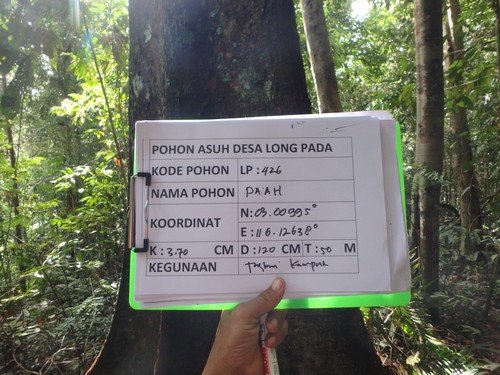 POHON ASUH DESA LONG PADA
KODE POHON LP : 426
NAMA POHON PAAH
KOORDINAT N: 03.00995°
E : 116.12638°
K : 3.70 CM D : 120 CM T : 50 M
KEGUNAAN